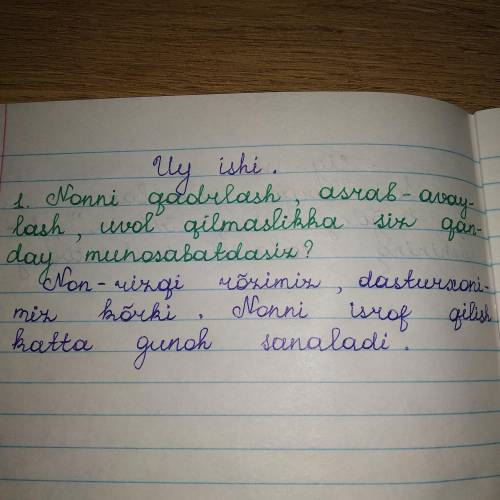 Uy ishi.
1. Nonni qadrlash, asrab-avay-
lash, uvol qilmaslikka siz qan-
day munosabatdasiz?
Non-rizqi rõzimiz, dasturxoni-
miz kõrki. Nonni isrof qilish
katta gunoh sanaladi.